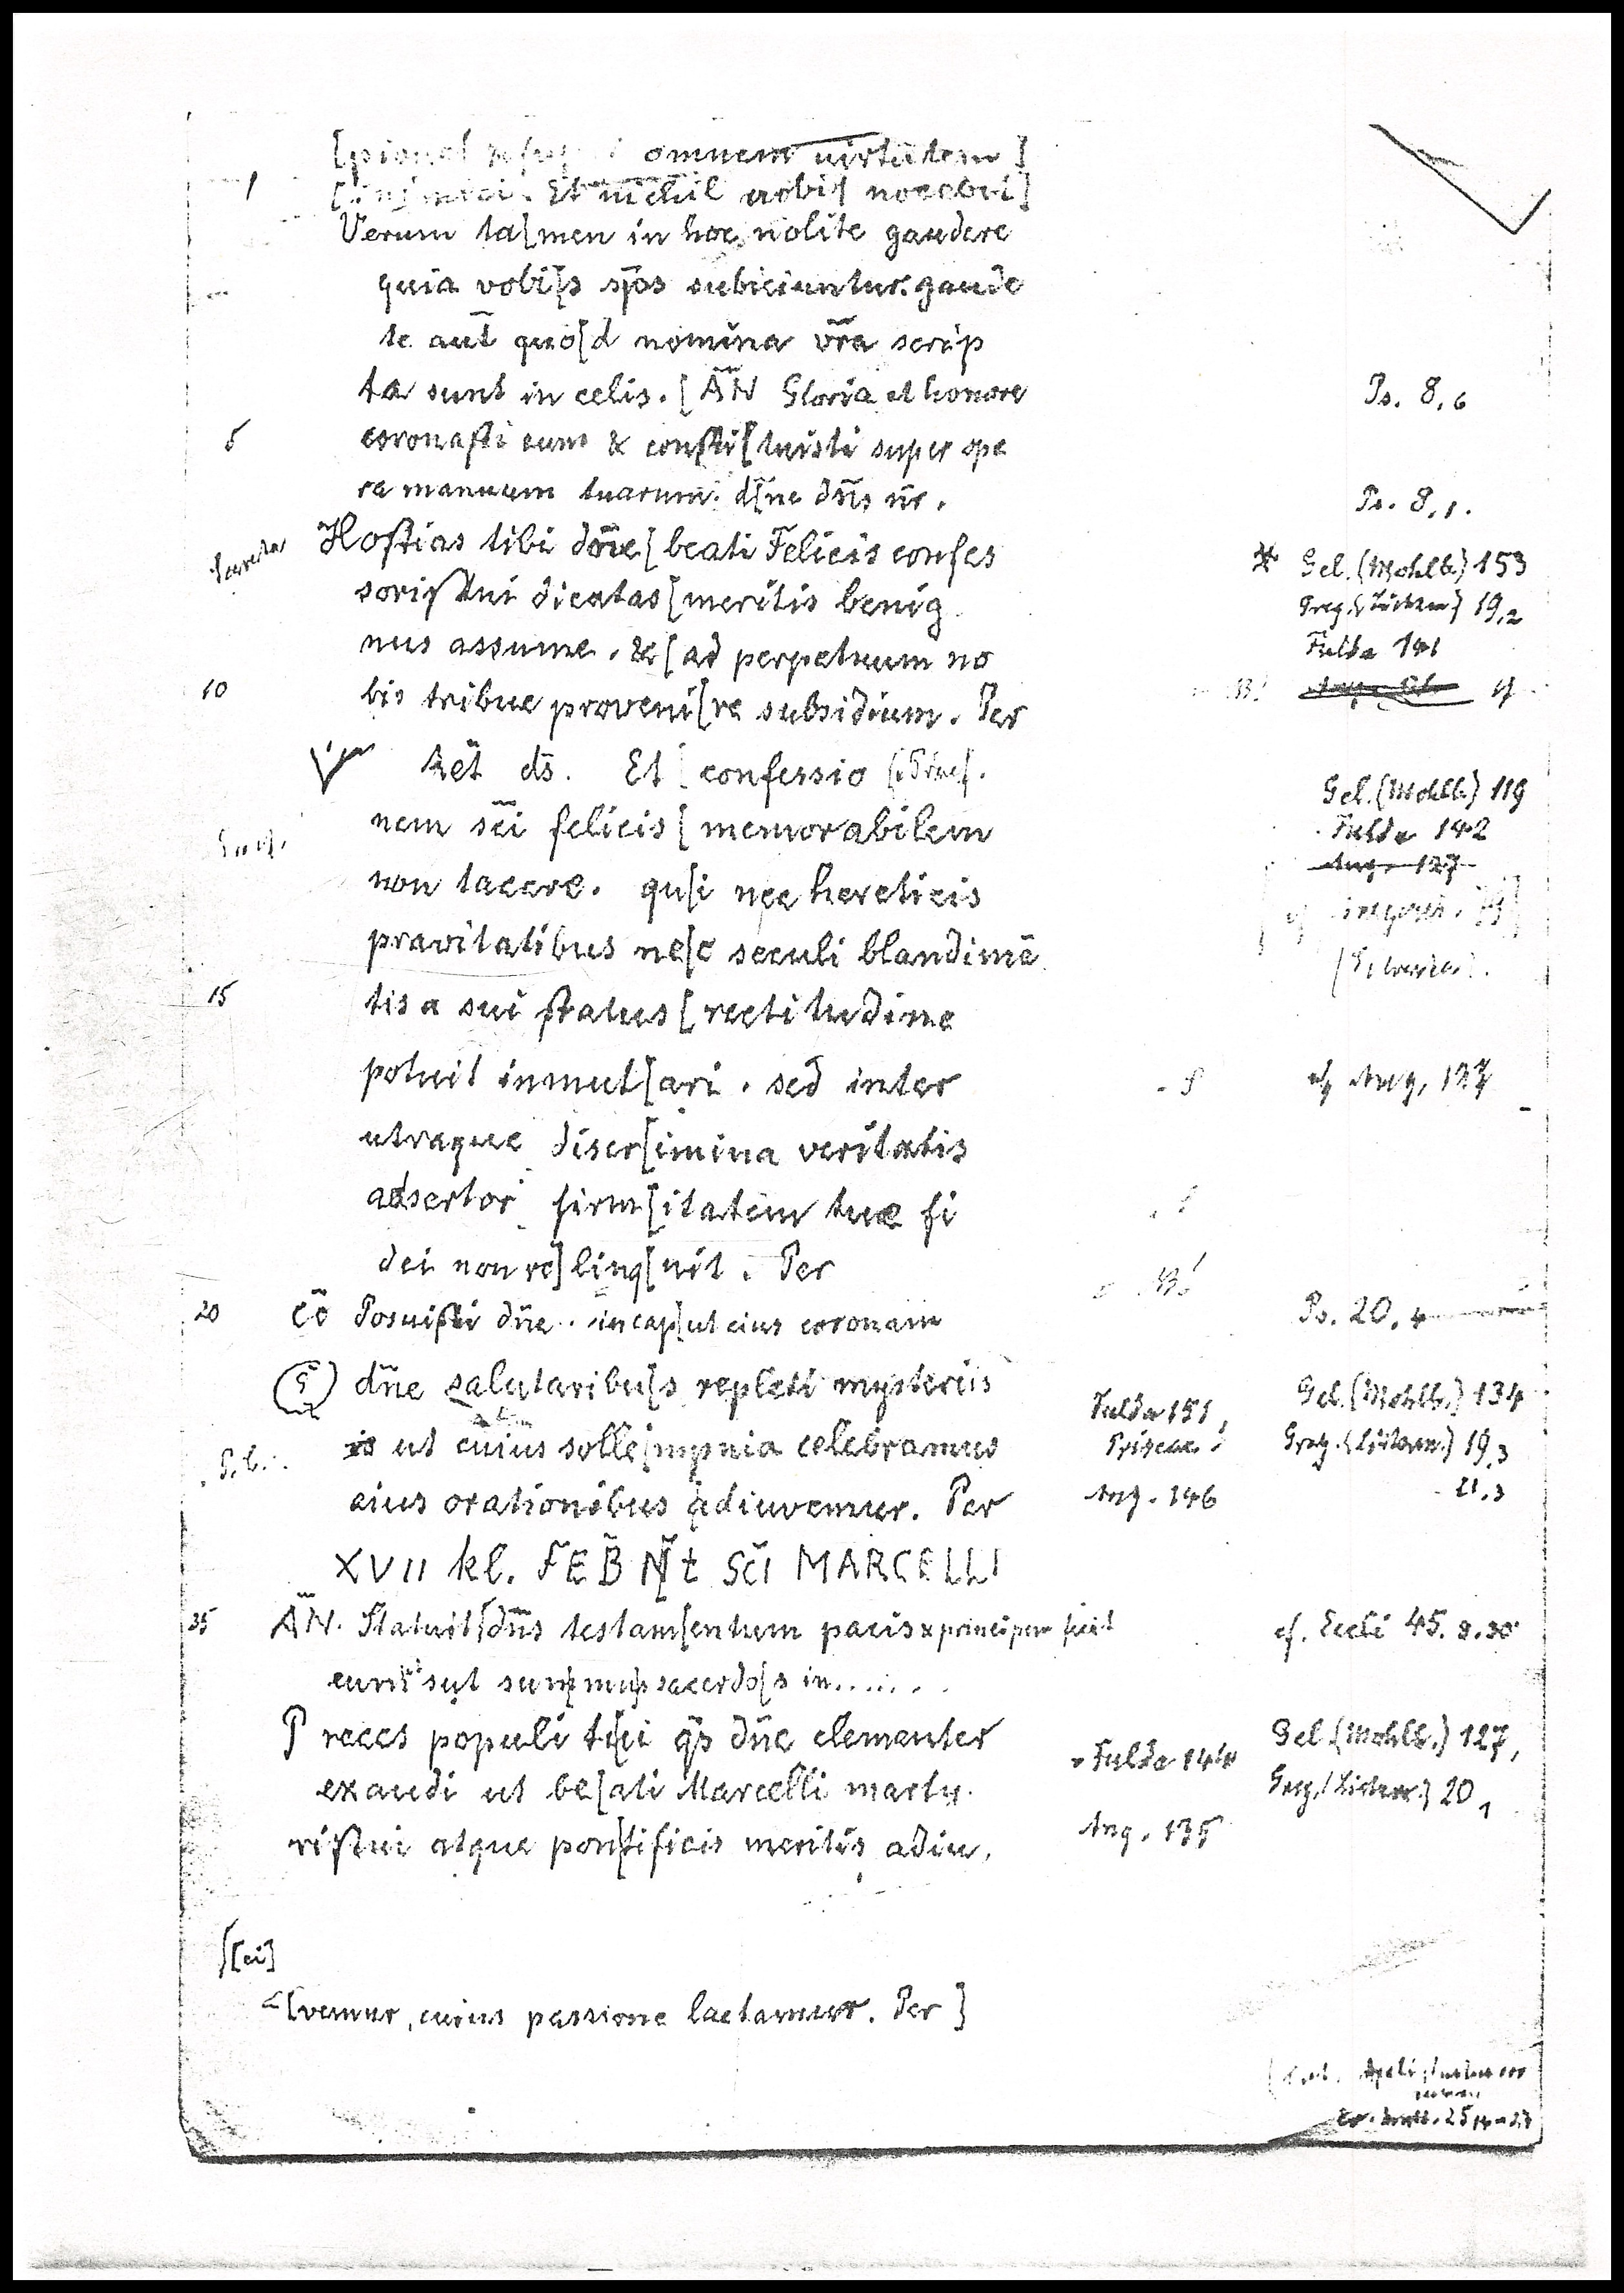 omnem virtutem]
Et nichil vobis nocebit]
Verum ta[men in hoc nolite gaudere
quia vobi[s sp̄s subiciuntur. gaude
te aut̄ quo[d nomina vr̄a scrip
ta sunt in celis. [ ĀN Gloria et honore
Ps. 8,6
5 coronasti eum & consti[tuisti super ope
re manuum tuarum. d[n̄e dn̄s nr̄.
Ps. 8,1.
Hostias tibi dom̄e [ beati Felicis confes
* Gel. (Mohlb.) 153
soris tui dicatas [ meritis benig
Greg. (Lietzm) 19,2
nus assume. & [ ad perpetuum no
Fulda 141
10 bis tribue proveni[re subsidium. Per
V̄ ket d̄s. Et [ confessio
Gel. (Mohlb.) 119
nem sc̄i felicis [ memorabilem
Fulda 142
non tacere. qu[i nec hereticis
Aug. 127
pravitatibus ne[c seculi blandimē
15 tis a sui status [ rectitudine
potuit inmut[ari. sed inter
cf Aug. 127
utraque discr[imina veritatis
adsertor firm[itatem tuae fi
dei non re] linq[uit. Per
20 C̄O Posuisti dn̄e in cap[ut eius coronam
Ps. 20,4
dn̄e salutaribu[s repleti mysteriis
Fulda 151, Gel. (Mohlb.) 134
is ut cuius solle[mpnia celebramus
Priscae! Greg. (Lietzm.) 19,3
eius orationibus adiuvemur. Per
Ang. 146 21,3
XVII kl. FEB̄ N[t SC̄I MARCELLI
25 ĀN. Statuit [dn̄s testam[entum pacis & principem fecit
cf. Eccli 45. 8.30
eum sut summus sacerdo[s in......
P reces populi t[ui q̄s dn̄e clementer
Fulda 144 Gel. (Mohlb.) 127,
exaudi ut be[ati Marcelli marty.
Greg. (Lietzm.) 20,1
ris tui atque pon[tificis meritis adiu,
Ang. 135
[ei]
[vemur, cuius passione laetamur. Per]